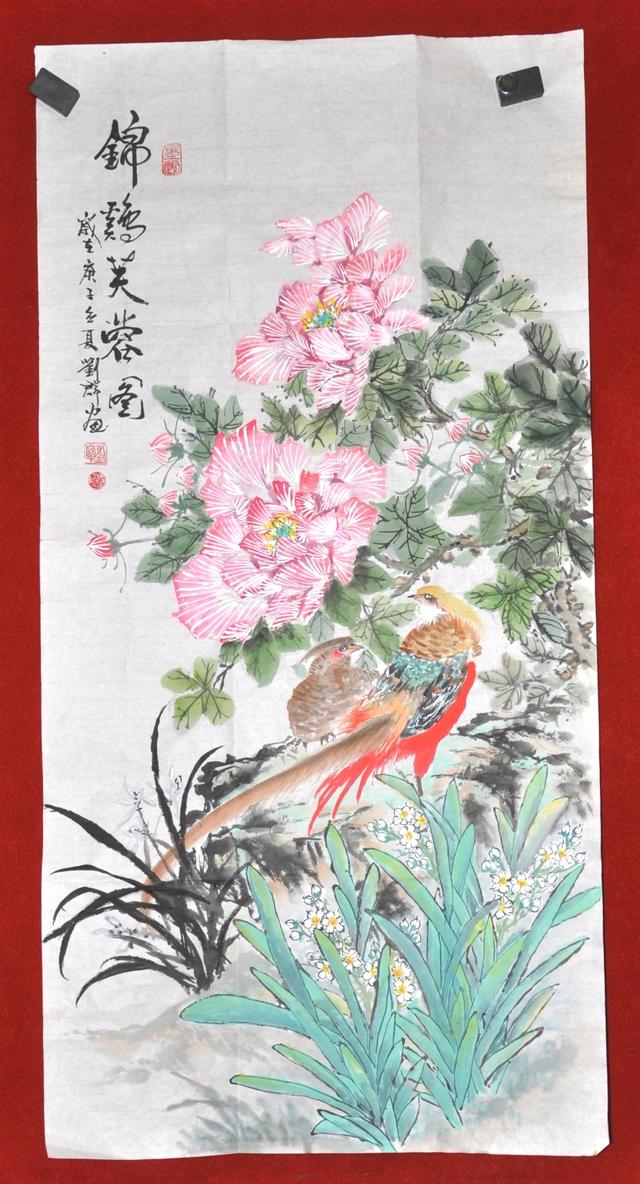 錦鷄芙蓉图
歲在庚子之夏劉群画